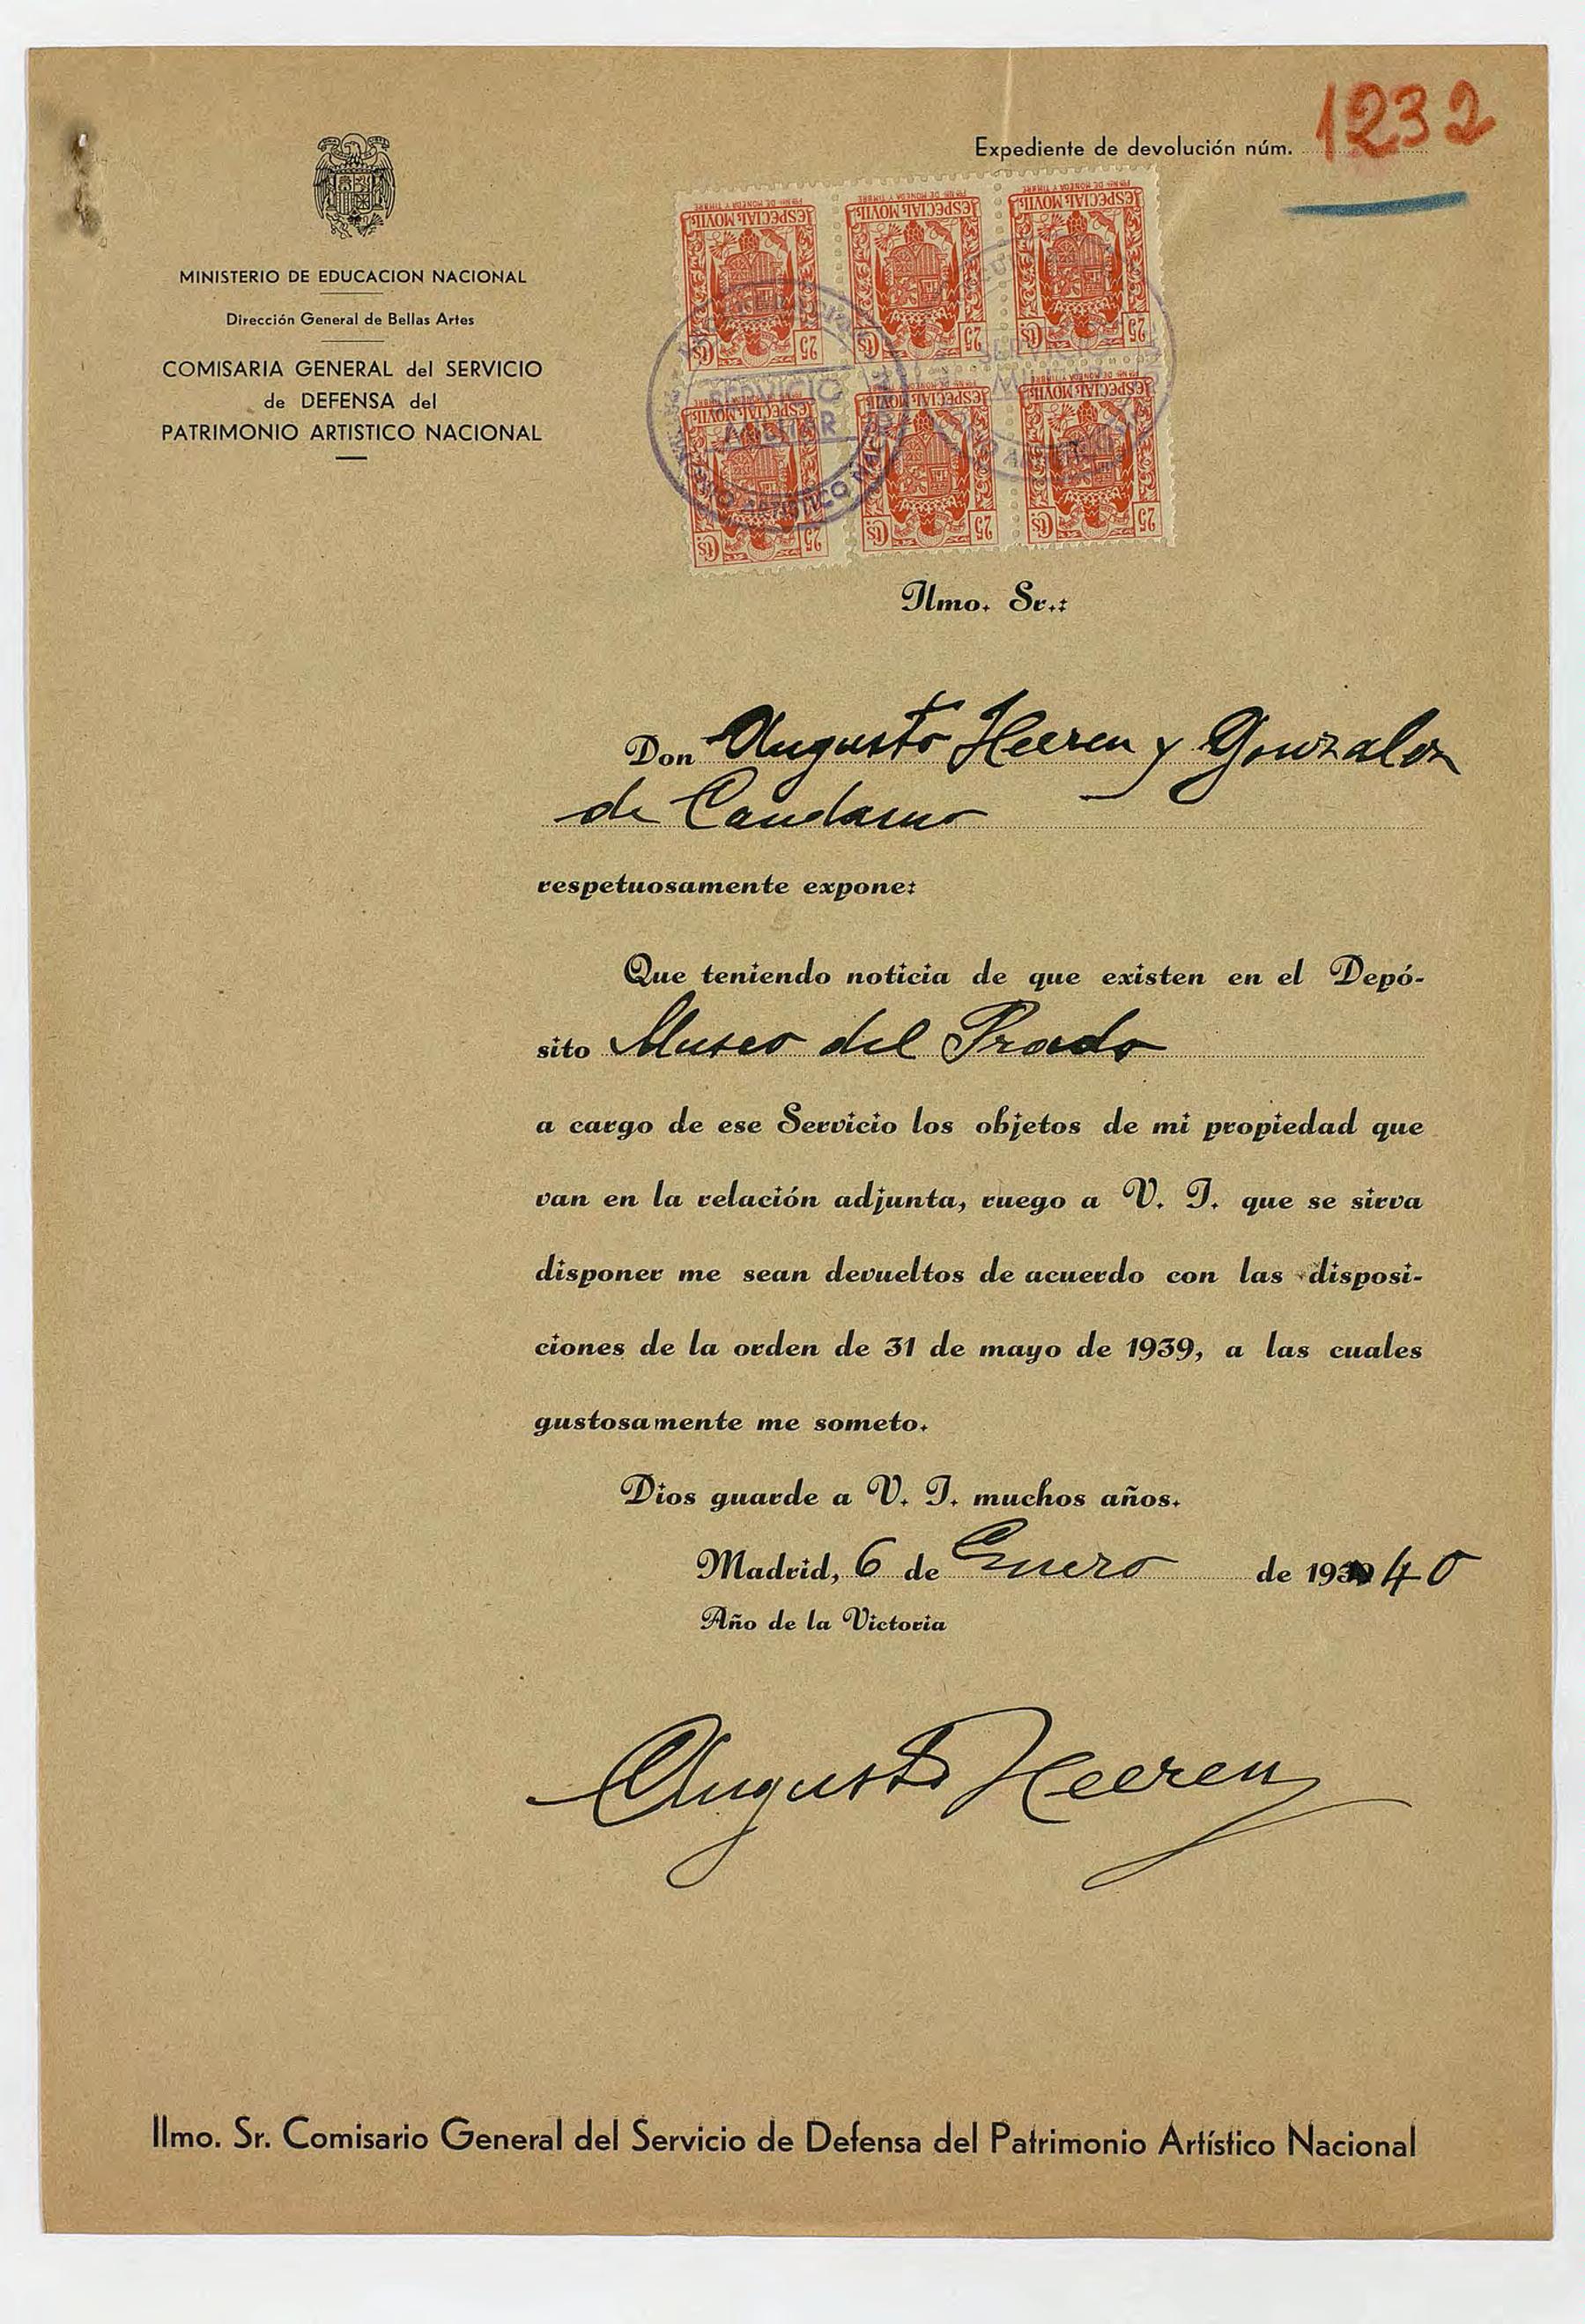 Expediente de devolución núm. 1232
MINISTERIO DE EDUCACION NACIONAL
Dirección General de Bellas Artes
COMISARIA GENERAL del SERVICIO
de DEFENSA del
PATRIMONIO ARTISTICO NACIONAL
ESPECIAL MOVIL ESPECIAL MOVIL ESPECIAL MOVIL
25 Cts 25 Cts 25 Cts
ESPECIAL MOVIL ESPECIAL MOVIL ESPECIAL MOVIL
25 Cts 25 Cts 25 Cts
SERVICIO
MILITAR
Ilmo. Sr.:
Don Augusto Heeren y Gonzalez
de Candamo
respetuosamente expone:
Que teniendo noticia de que existen en el Depó-
sito Museo del Prado
a cargo de ese Servicio los objetos de mi propiedad que
van en la relación adjunta, ruego a V. I. que se sirva
disponer me sean devueltos de acuerdo con las disposi-
ciones de la orden de 31 de mayo de 1939, a las cuales
gustosamente me someto.
Dios guarde a V. I. muchos años.
Madrid, 6 de Enero de 1940
Año de la Victoria
Augusto Heeren
Ilmo. Sr. Comisario General del Servicio de Defensa del Patrimonio Artístico Nacional